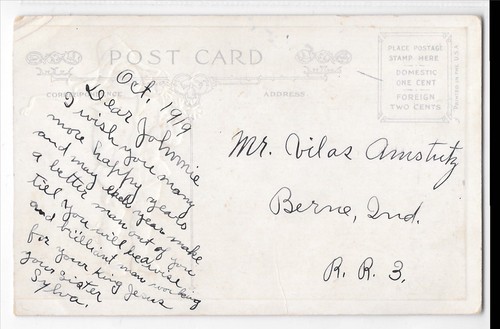 POST CARD
CORRESPONDENCE
ADDRESS
PLACE POSTAGE
STAMP HERE
DOMESTIC
ONE CENT
FOREIGN
TWO CENTS
PRINTED IN THE U.S.A.
Oct, 1919
Dear Johnnie
I wish you many
more happy years
and may each year make
a better man out of you
till you will become
and brilliant man working
for your king Jesus
your sister
Sylva.
Mr. Vilas Amstutz
Berne, Ind.
R. R. 3.